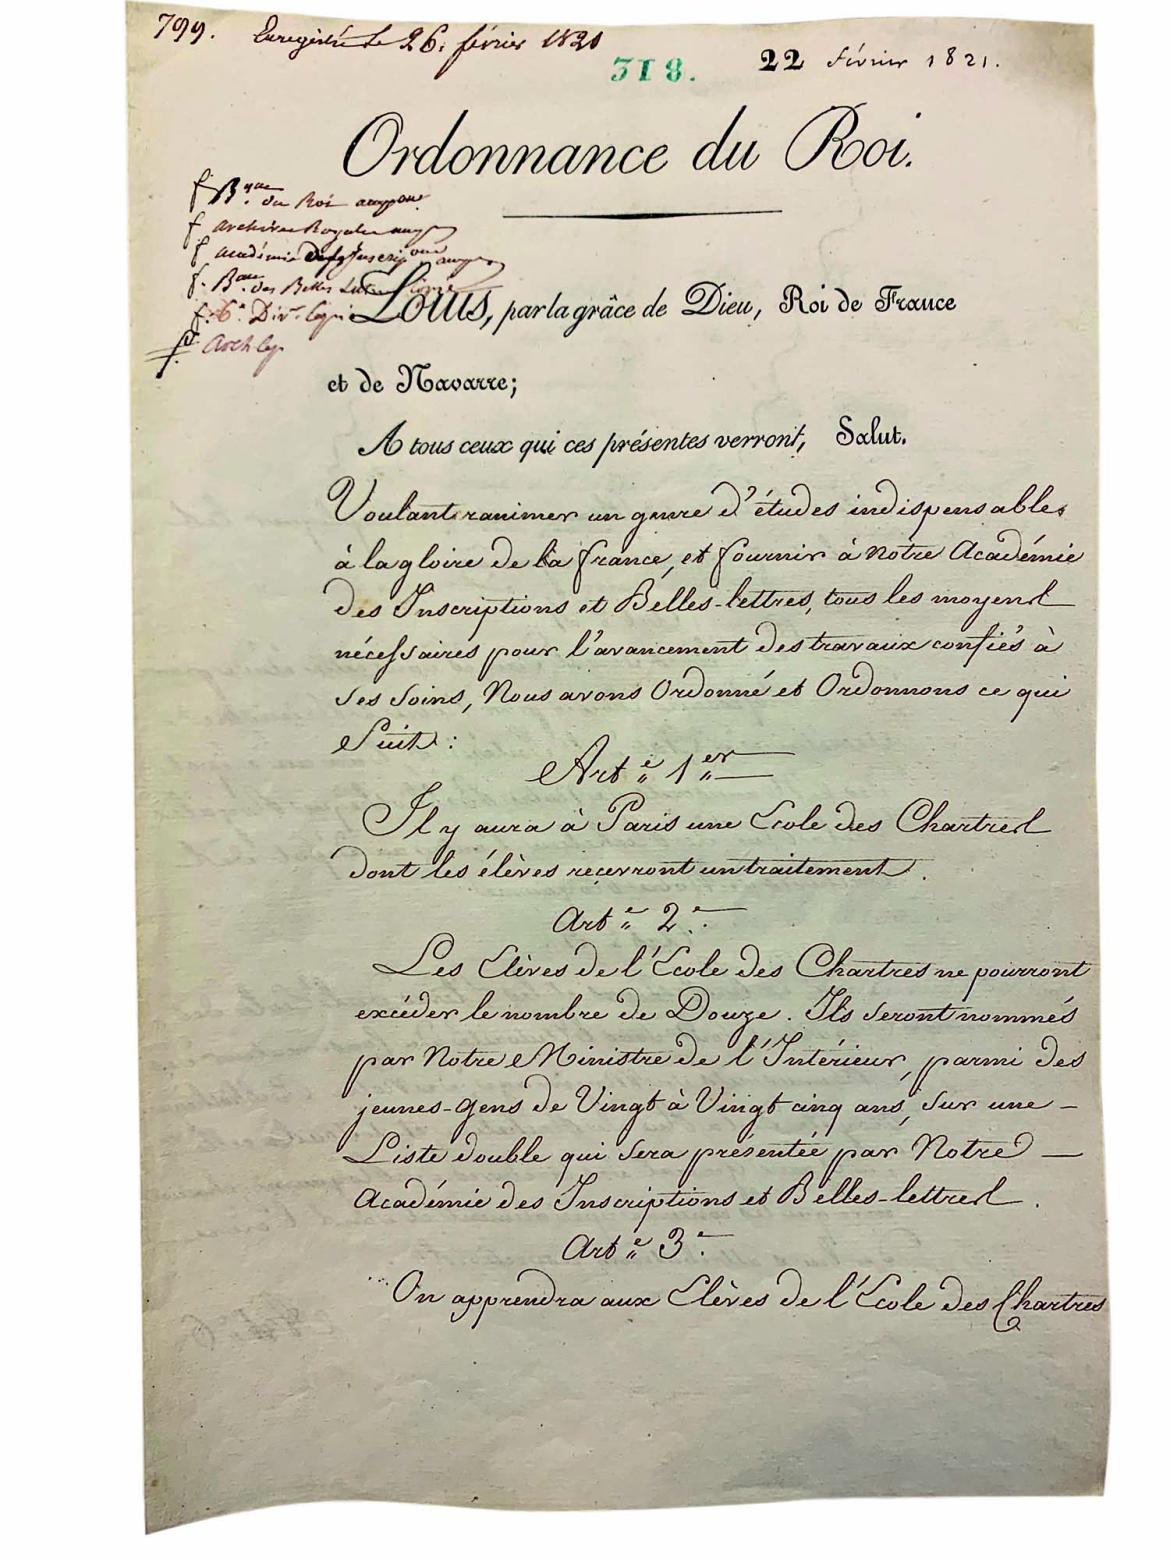 799. Enregistré le 26. février 1821
318.
22 février 1821.
Ordonnance du Roi.
f Bque du Roi
f archives Royales
f académie des Inscripons
f. Bau des Belles Lettres
f. 6e Divon
Louis, par la grâce de Dieu, Roi de France
et de Navarre;
A tous ceux qui ces présentes verront, Salut.
Voulant ranimer un genre d'études indispensables
à la gloire de la france, et fournir à Notre Académie
des Inscriptions et Belles-lettres, tous les moyens
nécessaires pour l'avancement des travaux confiés à
ses soins, Nous avons Ordonné et Ordonnons ce qui
Suit :
Arte 1er
Il y aura à Paris une Ecole des Chartres
dont les élèves recevront un traitement.
Arte 2e
Les Elèves de l'Ecole des Chartres ne pourront
excéder le nombre de Douze. Ils seront nommés
par Notre Ministre de l'Intérieur, parmi des
jeunes-gens de Vingt à Vingt cinq ans, sur une -
Liste double qui sera présentée par Notre -
Académie des Inscriptions et Belles-lettres.
Arte 3e
On apprendra aux Elèves de l'Ecole des Chartres